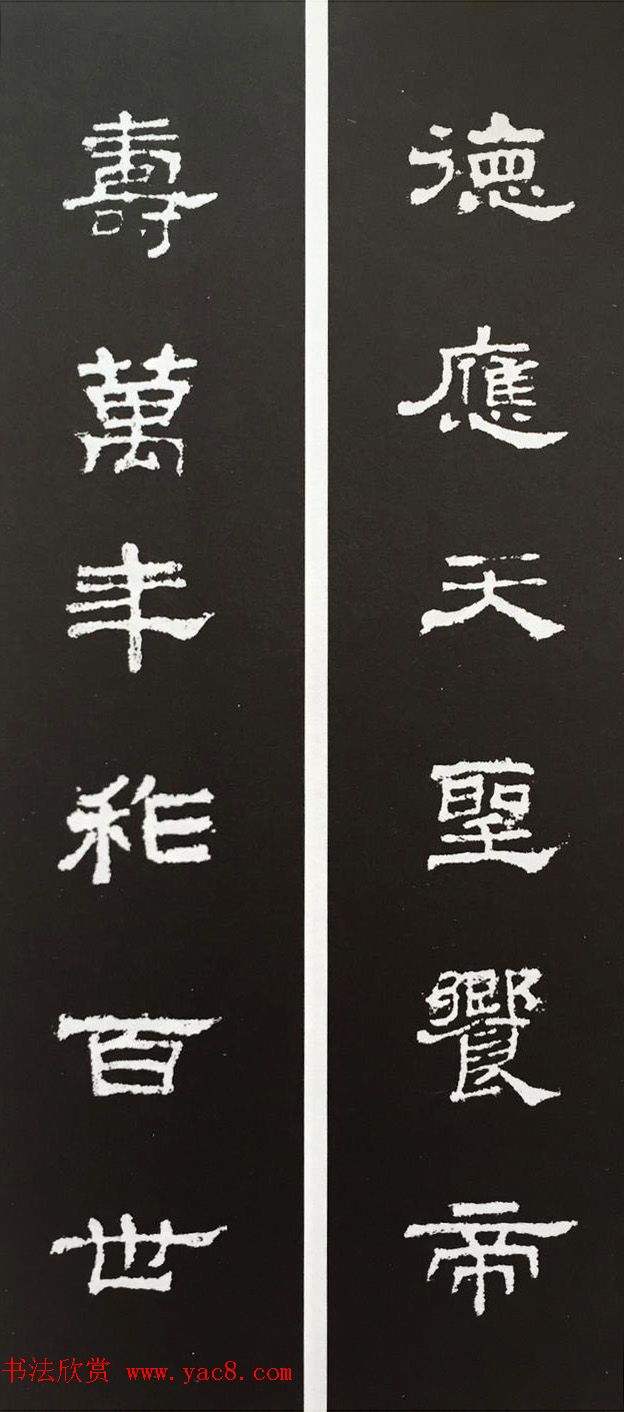 德應天聖饗帝
壽萬年祚百世
书法欣赏 www.yac8.com